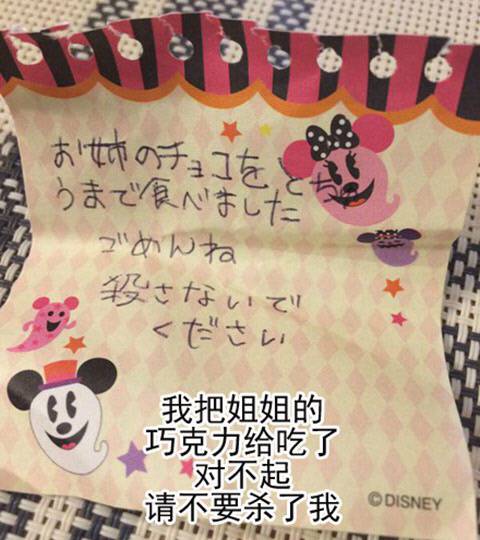 お姉のチョコをとちゅ
うまで食べました
ごめんね
殺さないで
ください
我把姐姐的
巧克力给吃了
对不起
请不要杀了我
©DISNEY